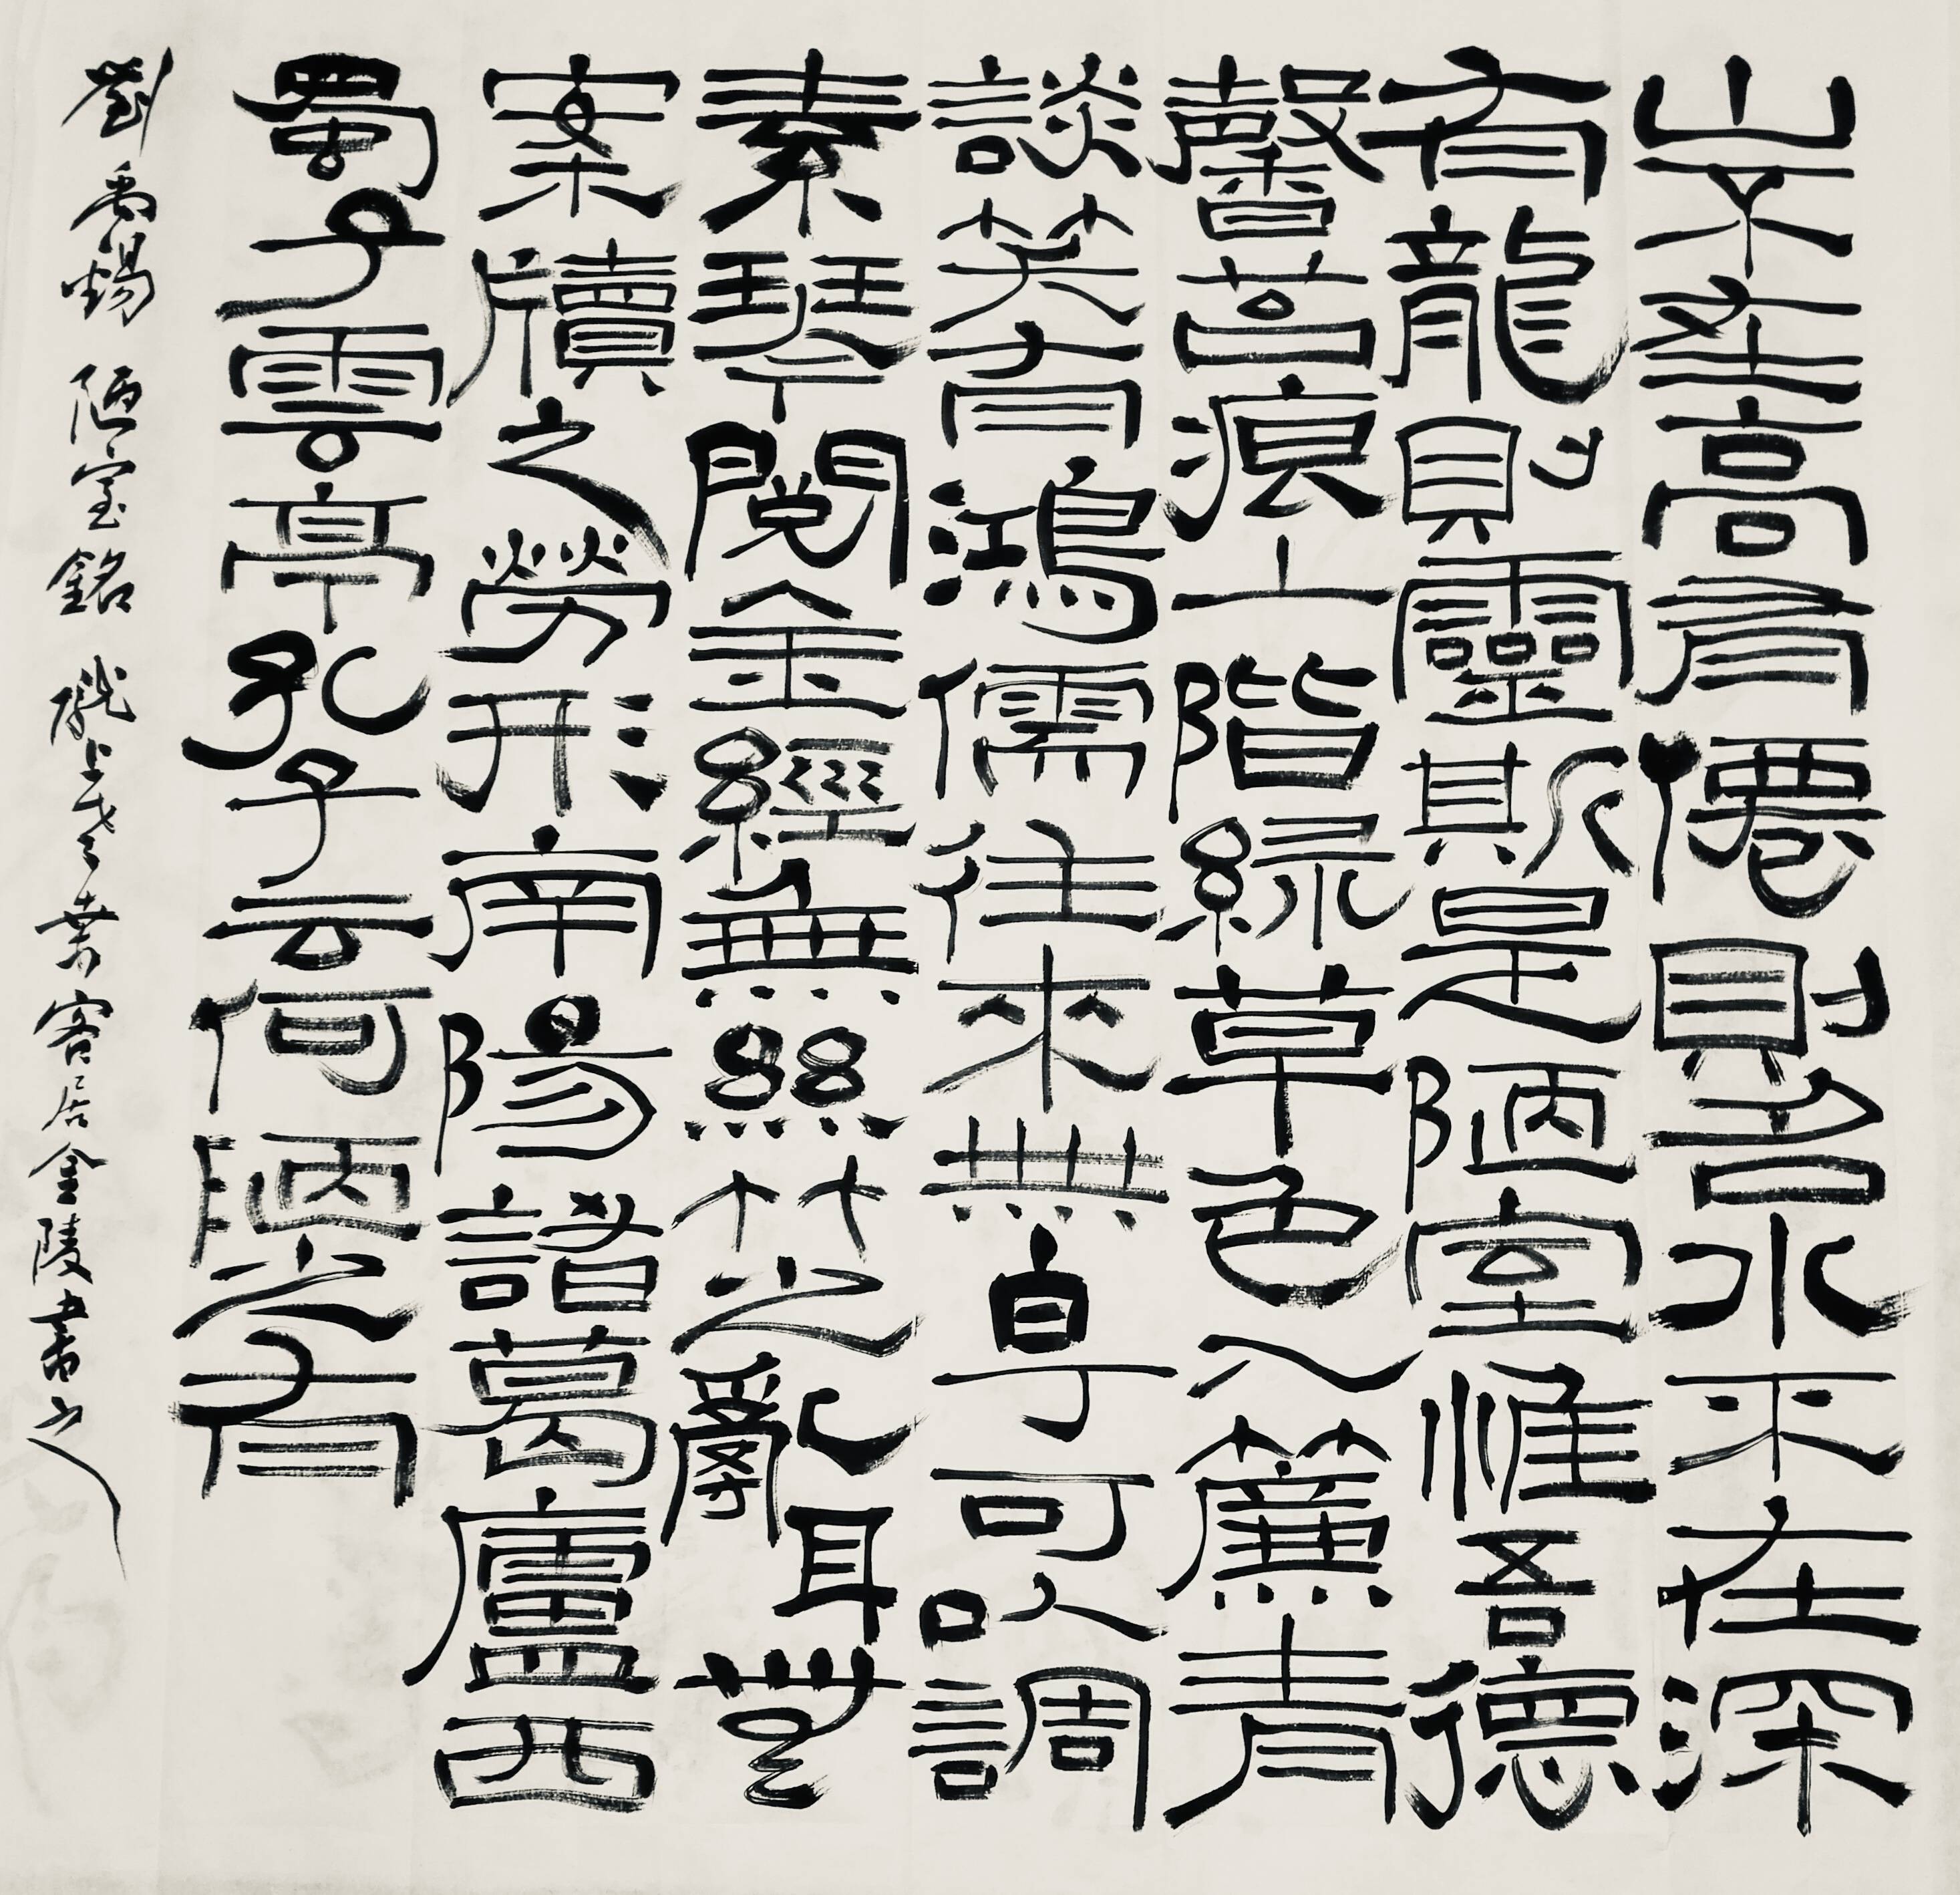 山不在高有僊則名水不在深
有龍則靈斯是陋室惟吾德
馨苔痕上階綠草色入簾青
談笑有鴻儒往來無白丁可以調
素琴閱金經無絲竹之亂耳無
案牘之勞形南陽諸葛廬西
蜀子雲亭孔子云何陋之有
劉禹錫 陋室銘 隴上 業客居金陵書之